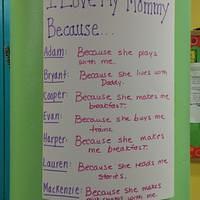 I Love My Mommy
Because...
Adam: Because she plays
with me.
Bryant: Because she lives with
Daddy.
Cooper: Because she makes me
breakfast.
Evan: Because she buys me
trains.
Harper: Because she makes
me breakfast.
Lauren: Because she reads me
stories.
Mackenzie: Because she makes
with me.